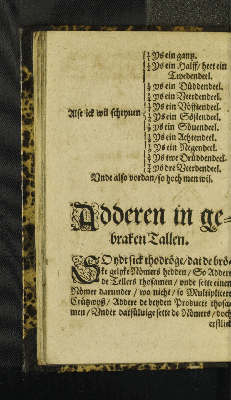 1/1 Ys ein gantz.
1/2 Ys ein Halff / hetet ein
Twedendeel.
ys ein Düddendeel.
ys ein Veerdendeel.
Ys ein Vöfftendeel.
Alse ick wil schryuen
Ys ein Söstendeel.
ys ein Söuendeel.
Ys ein Achtendeel.
Ys ein Negendeel.
ys twe Drüddendeel.
ys dre Veerdendeel.
Vnde also vordan / so hoch men wil.
Adderen in ge-
braken Tallen.
SO ydt sick thodröge / dat de brö-
ke gelyke Nömers hedden / So Addere
de Tellers thosamen / vnde sette einen
Nömer darunder / wo nicht / so Multiplicere
Crützwyß / Addere de beyden Producte thosa-
men / Vnder datsüluige sette de Nömers / doch
erstlick